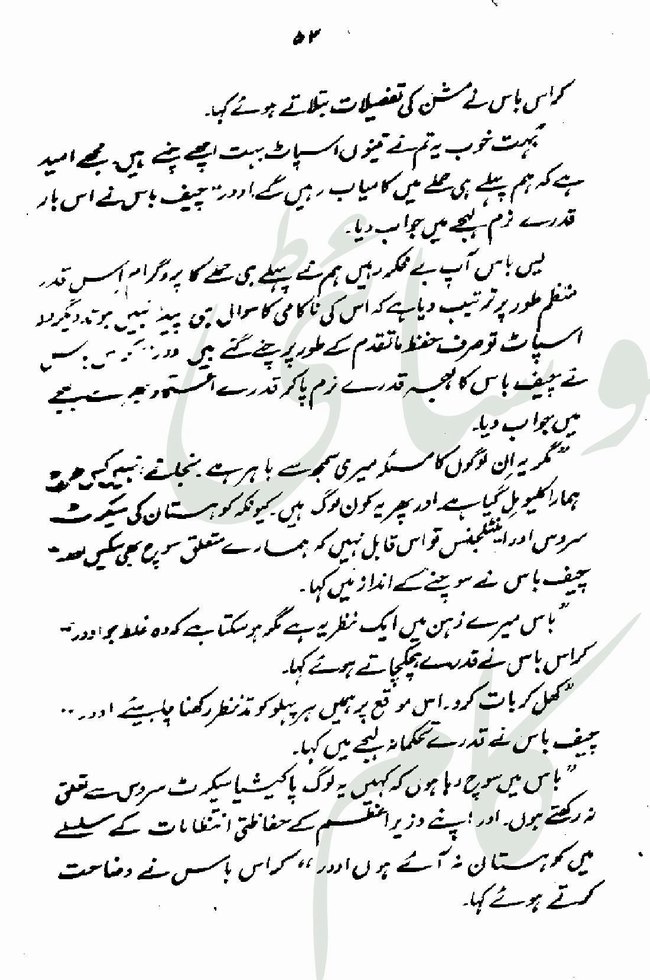 ۵۴
کراس باس نے مشن کی تفصیلات بتلاتے ہوئے کہا۔
"بہت خوب یہ تم نے تینوں اسپاٹ بہت اچھے چنے ہیں۔ مجھے امید
ہے کہ ہم پہلے ہی حملے میں کامیاب رہیں گے اوور" چیف باس نے اس بار
قدرے نرم لہجے میں جواب دیا۔
یس باس آپ بے فکر رہیں ہم نے پہلے ہی حملے کا پروگرام اس قدر
منظم طور پر ترتیب دیا ہے کہ اس کی ناکامی کا سوال ہی پیدا نہیں ہوتا۔ دیگر دو
اسپاٹ تو صرف حفظ ماتقدم کے طور پر چنے گئے ہیں اوور" کراس باس
نے چیف باس کا لہجہ قدرے نرم پا کر قدرے لہجے
میں جواب دیا۔
"مگر یہ ان لوگوں کا مسئلہ میری سمجھ سے باہر ہے۔ نجانے انہیں کس طرح
ہمارا کلیو مل گیا ہے اور پھر یہ کون لوگ ہیں۔ کیونکہ کوہستان کی سیکرٹ
سروس اور انٹیلجنس تو اس قابل نہیں کہ ہمارے متعلق سوچ بھی سکیں اوور"
چیف باس نے سوچنے کے انداز میں کہا۔
"باس میرے ذہن میں ایک نظریہ ہے مگر ہو سکتا ہے کہ وہ غلط ہو اوور"
کراس باس نے قدرے ہچکچاتے ہوئے کہا۔
"کھل کر بات کرو۔ اس موقع پر ہمیں ہر پہلو کو مدنظر رکھنا چاہیئے اوور"
چیف باس نے قدرے تحکمانہ لہجے میں کہا۔
"باس میں سوچ رہا ہوں کہ کہیں یہ لوگ پاکیشیا سیکرٹ سروس سے تعلق
نہ رکھتے ہوں۔ اور اپنے وزیر اعظم کے حفاظتی انتظامات کے سلسلے
میں کوہستان نہ آئے ہوں اوور" کراس باس نے وضاحت
کرتے ہوئے کہا۔
وسائی
کام